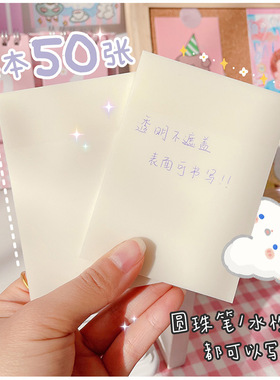 本50张
透明不遮盖
表面可书写!!
圆珠笔/水性
都可以写